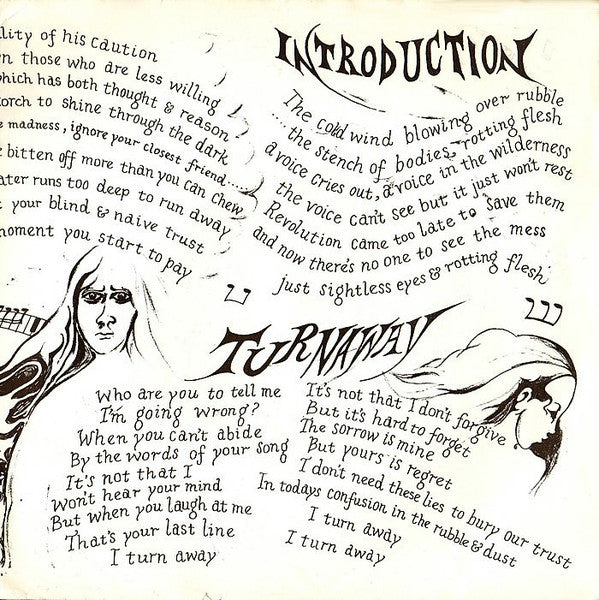 lity of his caution
n those who are less willing
hich has both thought & reason
orch to shine through the dark
e madness, ignore your closest friend....
e bitten off more than you can chew
ater runs too deep to run away
your blind & naive trust
moment you start to pay
INTRODUCTION
The cold wind blowing over rubble
.... the stench of bodies, rotting flesh
a voice cries out, a voice in the wilderness
the voice can't see but it just won't rest
Revolution came too late to save them
and now there's no one to see the mess
just sightless eyes & rotting flesh
TURNAWAY
Who are you to tell me
I'm going wrong?
When you can't abide
By the words of your song
It's not that I
Won't hear your mind
But when you laugh at me
That's your last line
I turn away
It's not that I don't forgive
But it's hard to forget
The sorrow is mine
But yours is regret
I don't need these lies to bury our trust
In todays confusion in the rubble & dust
I turn away
I turn away